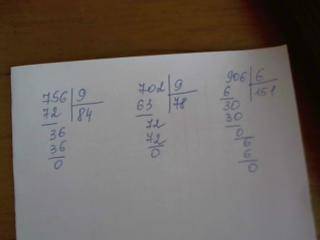 756 9
72 84
36
36
0
702 9
63 78
72
72
0
906 6
6 151
30
30
0
6
6
0